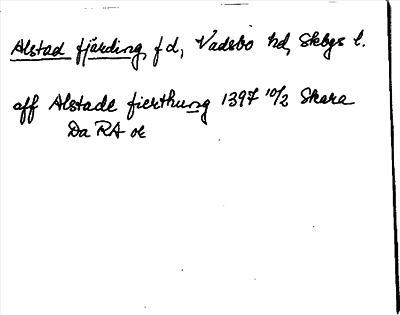 Alstad fjärding, f d, Vadsbo hd, Skbgs l.
aff Alstade fierthung 1397 10/2 Skara
Da RA or